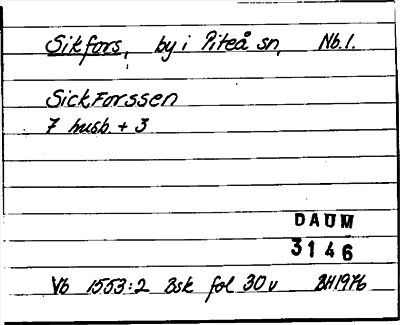 Sikfors, by i Piteå sn, Nb.l.
SickForssen
7 husb. + 3
DAUM
3146
Vb 1553:2 Bsk fol 30 v BH1976